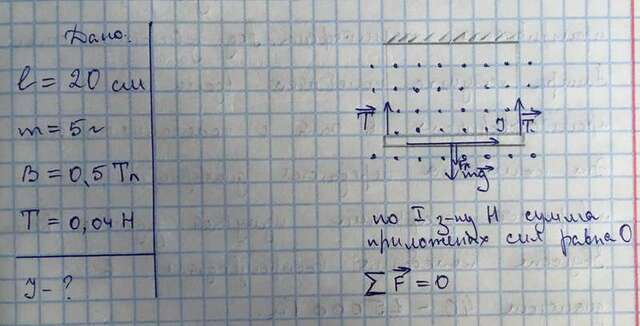 Дано:
l = 20 см
m = 5 г
B = 0,5 Тл
T = 0,04 Н
I - ?
T
I
T
mg
по I з-ну Н сумма
приложеных сил равна 0
∑ F = 0